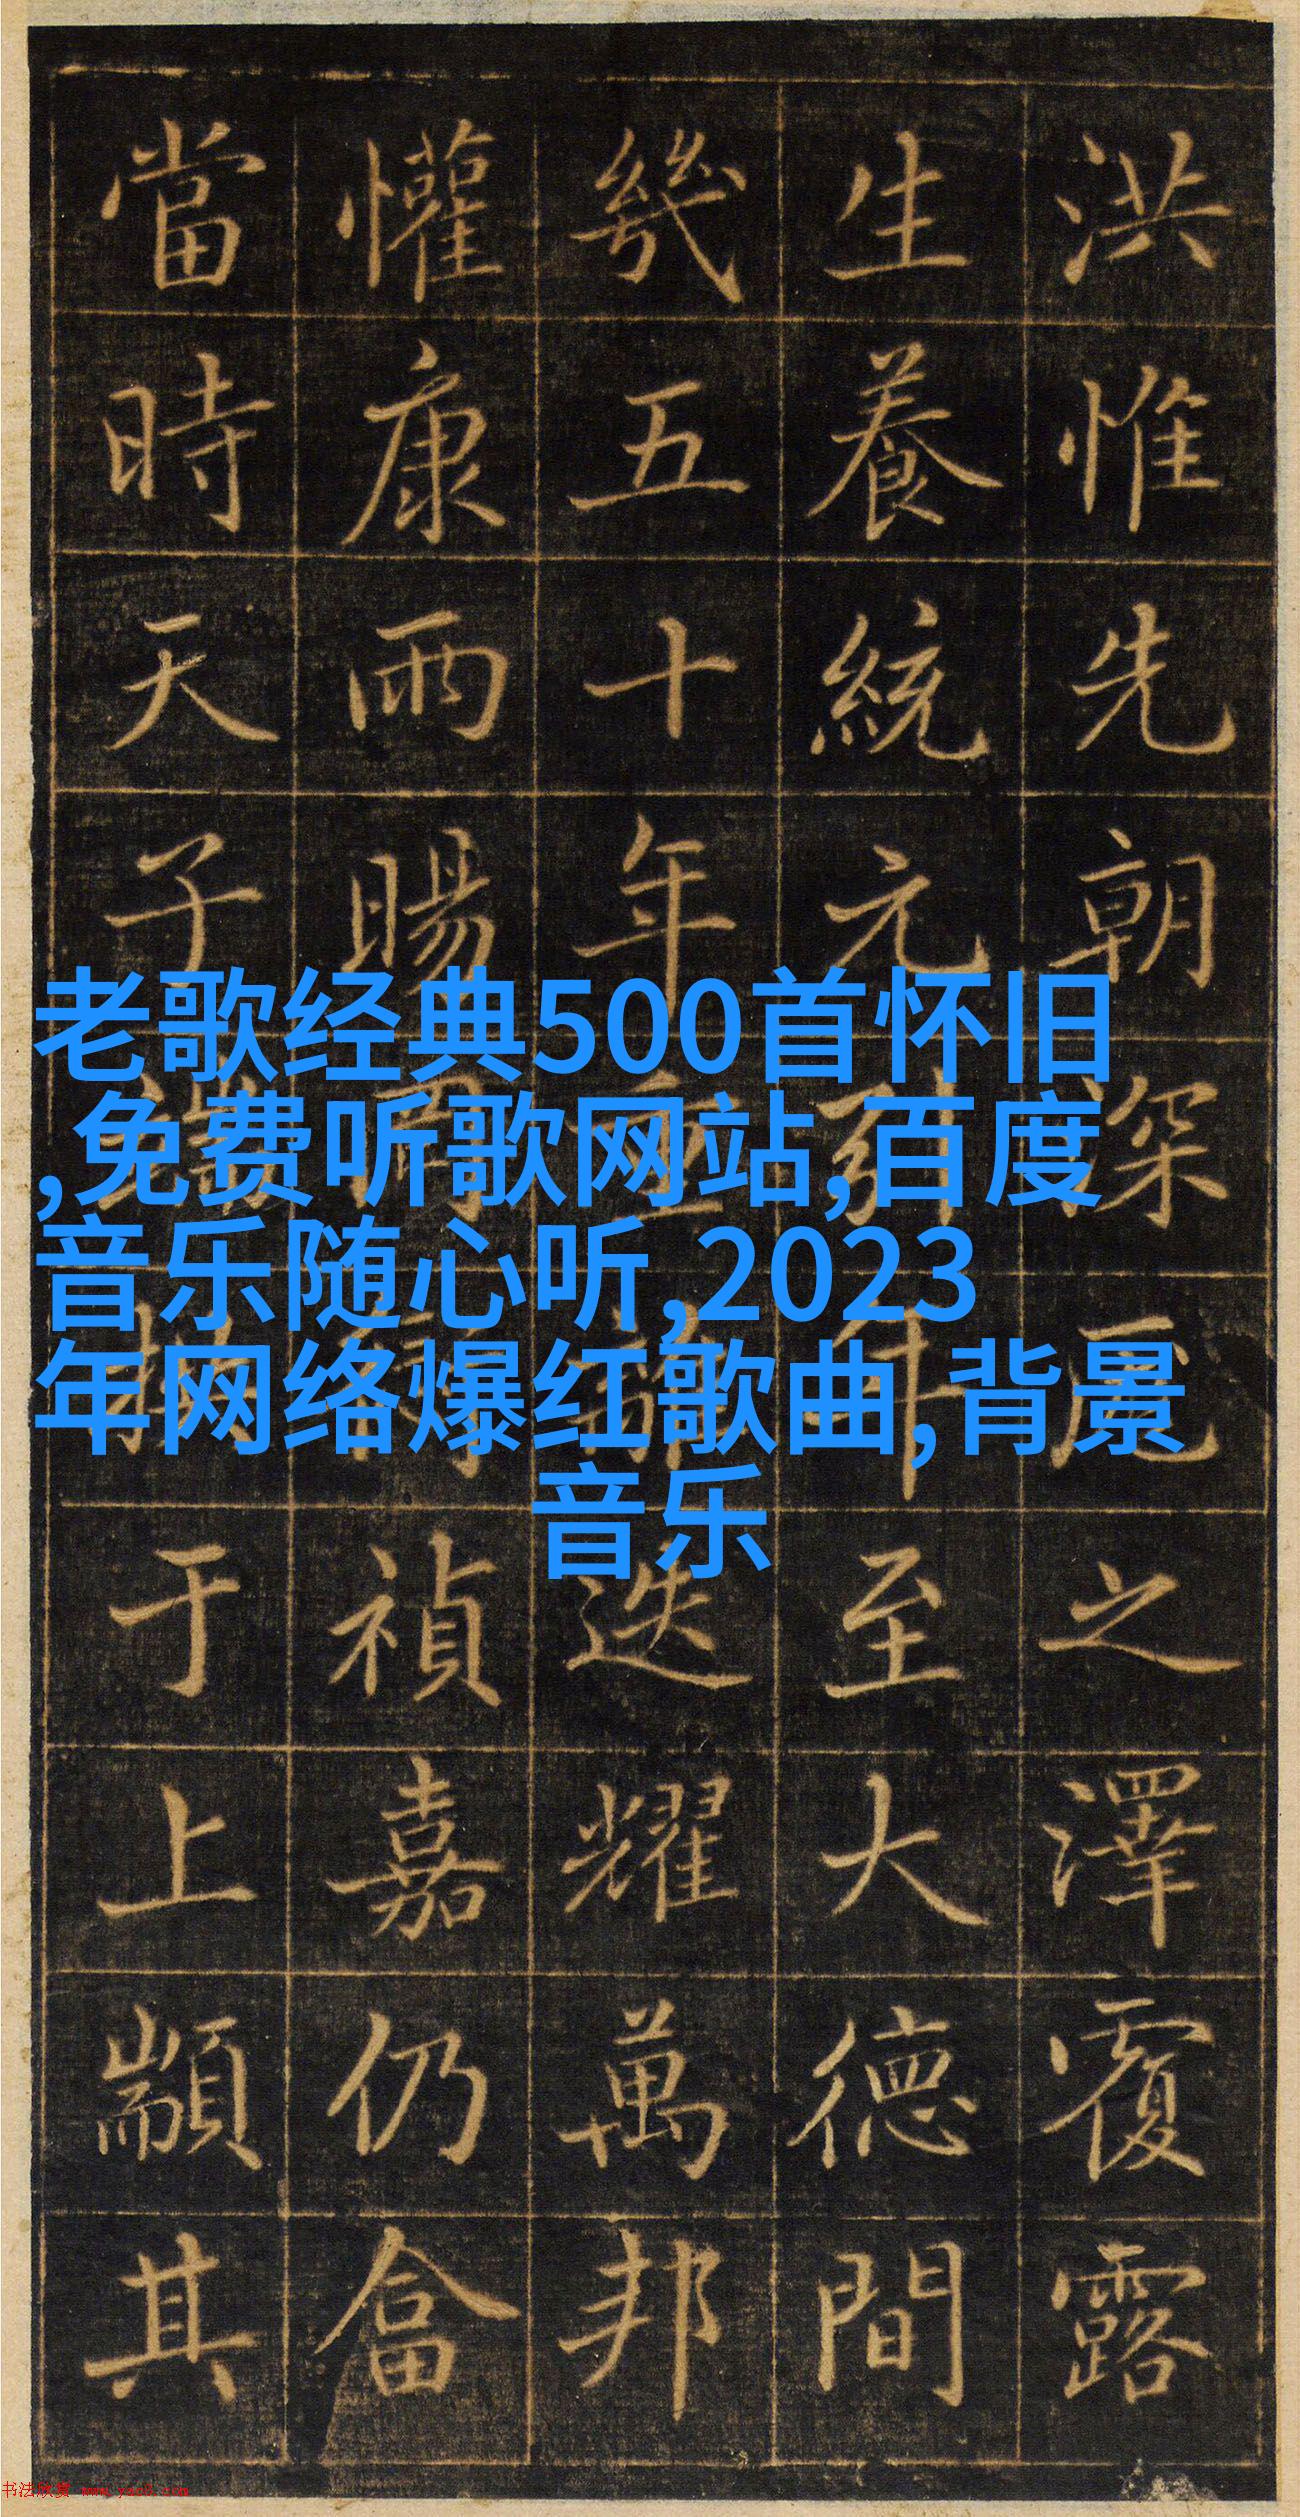 洪惟先朝深之澤覆露
生養統元至大德間
幾五十年重迭耀萬邦
懽康雨暘禎嘉仍畣
當時天子于上顒其
老歌经典500首怀旧
,免费听歌网站,百度
音乐随心听,2023
年网络爆红歌曲,背景
音乐
书法欣赏 www.yac8.com